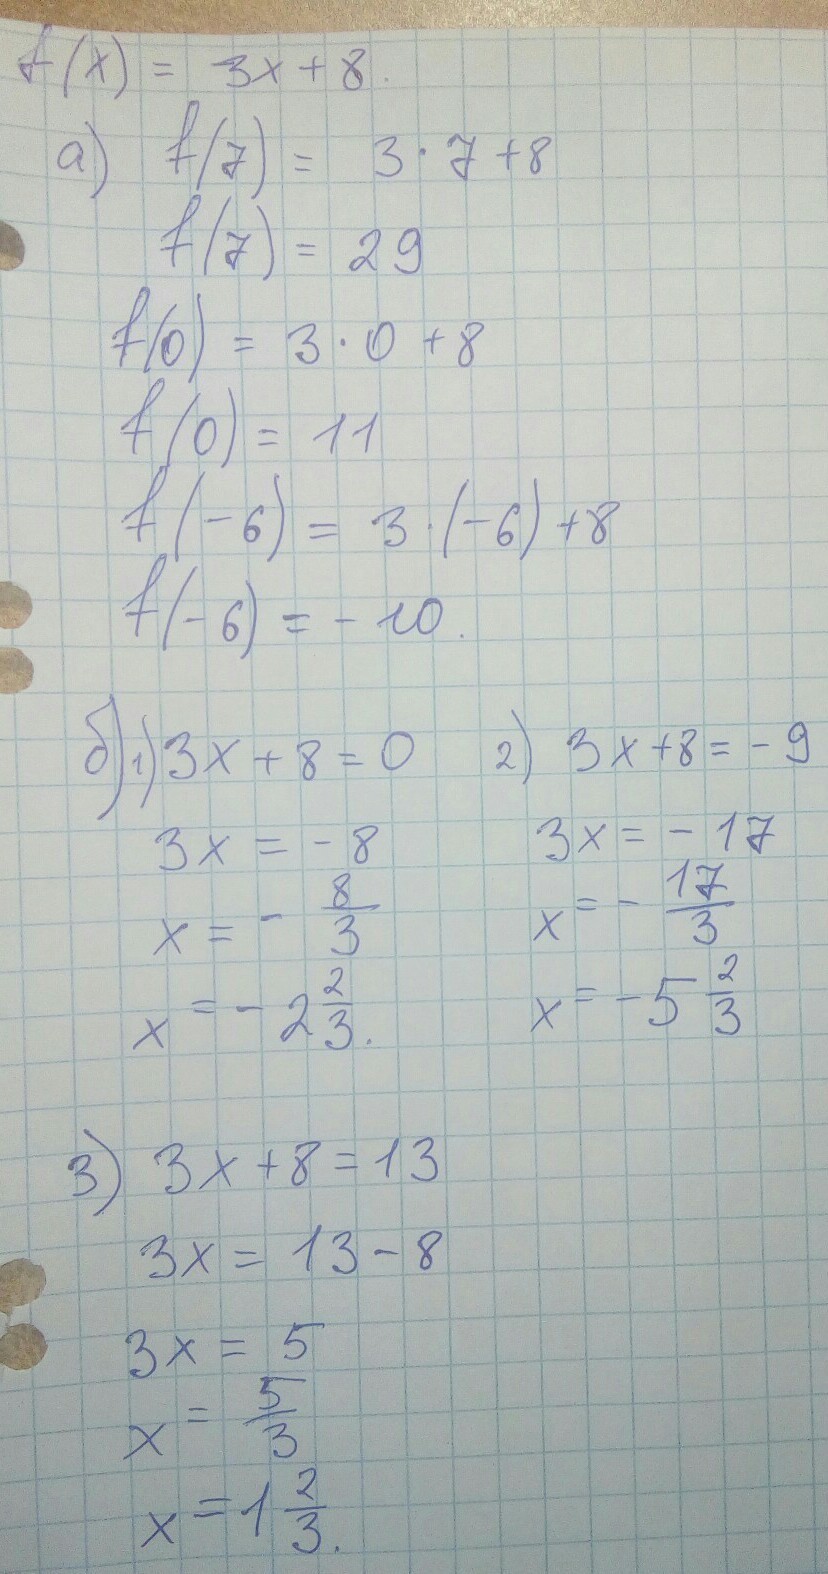 f(x) = 3x + 8.
а) f(7) = 3 · 7 + 8
f(7) = 29
f(0) = 3 · 0 + 8
f(0) = 11
f(-6) = 3 · (-6) + 8
f(-6) = - 10.
б) 1) 3x + 8 = 0
3x = - 8
x = - 8/3
x = - 2 2/3.
2) 3x + 8 = - 9
3x = - 17
x = - 17/3
x = - 5 2/3
3) 3x + 8 = 13
3x = 13 - 8
3x = 5
x = 5/3
x = 1 2/3.